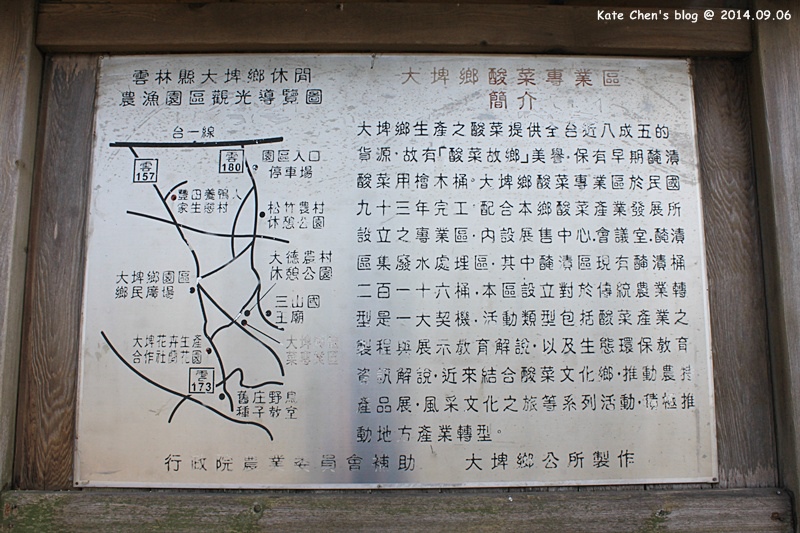 Kate Chen's blog @ 2014.09.06
雲林縣大埤鄉休閒
農漁園區觀光導覽圖
台一線
雲
157
雲
180
園區入口
停車場
豐田養鴨人
家生態村
松竹農村
休憩公園
大德農村
休憩公園
大埤鄉園區
鄉民廣場
三山國
王廟
大埤
大埤花卉生產
合作社開花園
雲
173
舊庄野鳥
種子教室
大埤鄉酸菜專業區
簡介
大埤鄉生產之酸菜提供全台近八成五的
貨源，故有「酸菜故鄉」美譽，保有早期醃漬
酸菜用檜木桶。大埤鄉酸菜專業區於民國
九十三年完工，配合本鄉酸菜產業發展所
設立之專業區，內設展售中心、會議室、醃漬
區集廢水處理區，其中醃漬區現有醃漬桶
二百一十六桶，本區設立對於傳統農業轉
型是一大契機，活動類型包括酸菜產業之
製程與展示教育解說，以及生態環保教育
資訊解說，近來結合酸菜文化鄉，推動農推
產品展，風采文化之旅等系列活動，積極推
動地方產業轉型。
行政院農業委員會補助 大埤鄉公所製作